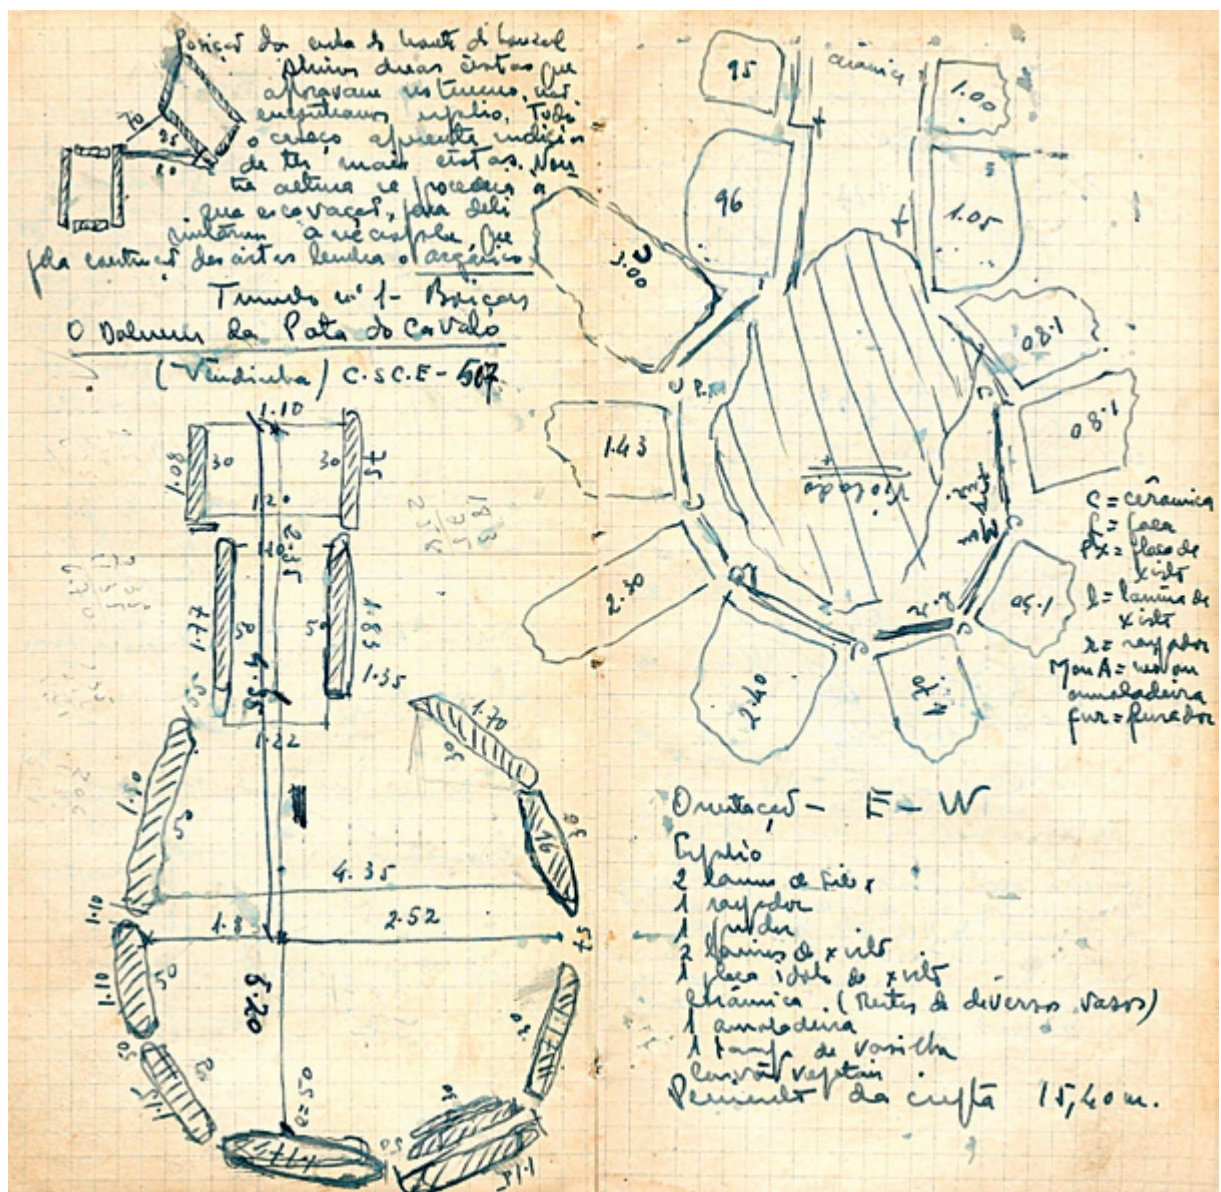 Posição das
Abrimos duas cistas que
afloravam no terreno, não
encontramos espólio. Todo
o cabeço apresenta indícios
de ter mais cistas. Nou
tra altura se procederá a
uma escavação, para deli
mitarmos a necrópole, que
pela construção das cistas lembra o argárico.
Tumulo nº 1 -
O Dolmen da Pata do Cavalo
(Vendinha) C.S.C.E - 507
1.10
1.08
30
30
75
1.20
1.10
2.35
1.77
50
50
1.83
4.35
1.35
1.22
1.70
30
1.90
50
16
4.35
1.3
2.52
57
1.10
50
5.20
30
50
1.15
0.50
1.17
50
1.15
95
cerâmica
1.00
96
1.05
2.00
1.80
1.43
1.80
Violado
2.30
1.50
2.40
1.70
C = cerâmica
f = faca
Px = placa de
xisto
l = lamina de
xisto
r = raspador
Mou A = mó ou
amoladeira
fur = furador
Orientação - E - W
Espólio
2 laminas de silex
1 raspador
1 furador
2 laminas de xisto
1 placa idolo de xisto
Cerâmica (restes de diversos vasos)
1 amoladeira
1 tampa de vasilha
Carvões vegetais
Perimetro da cripta 15,40 m.